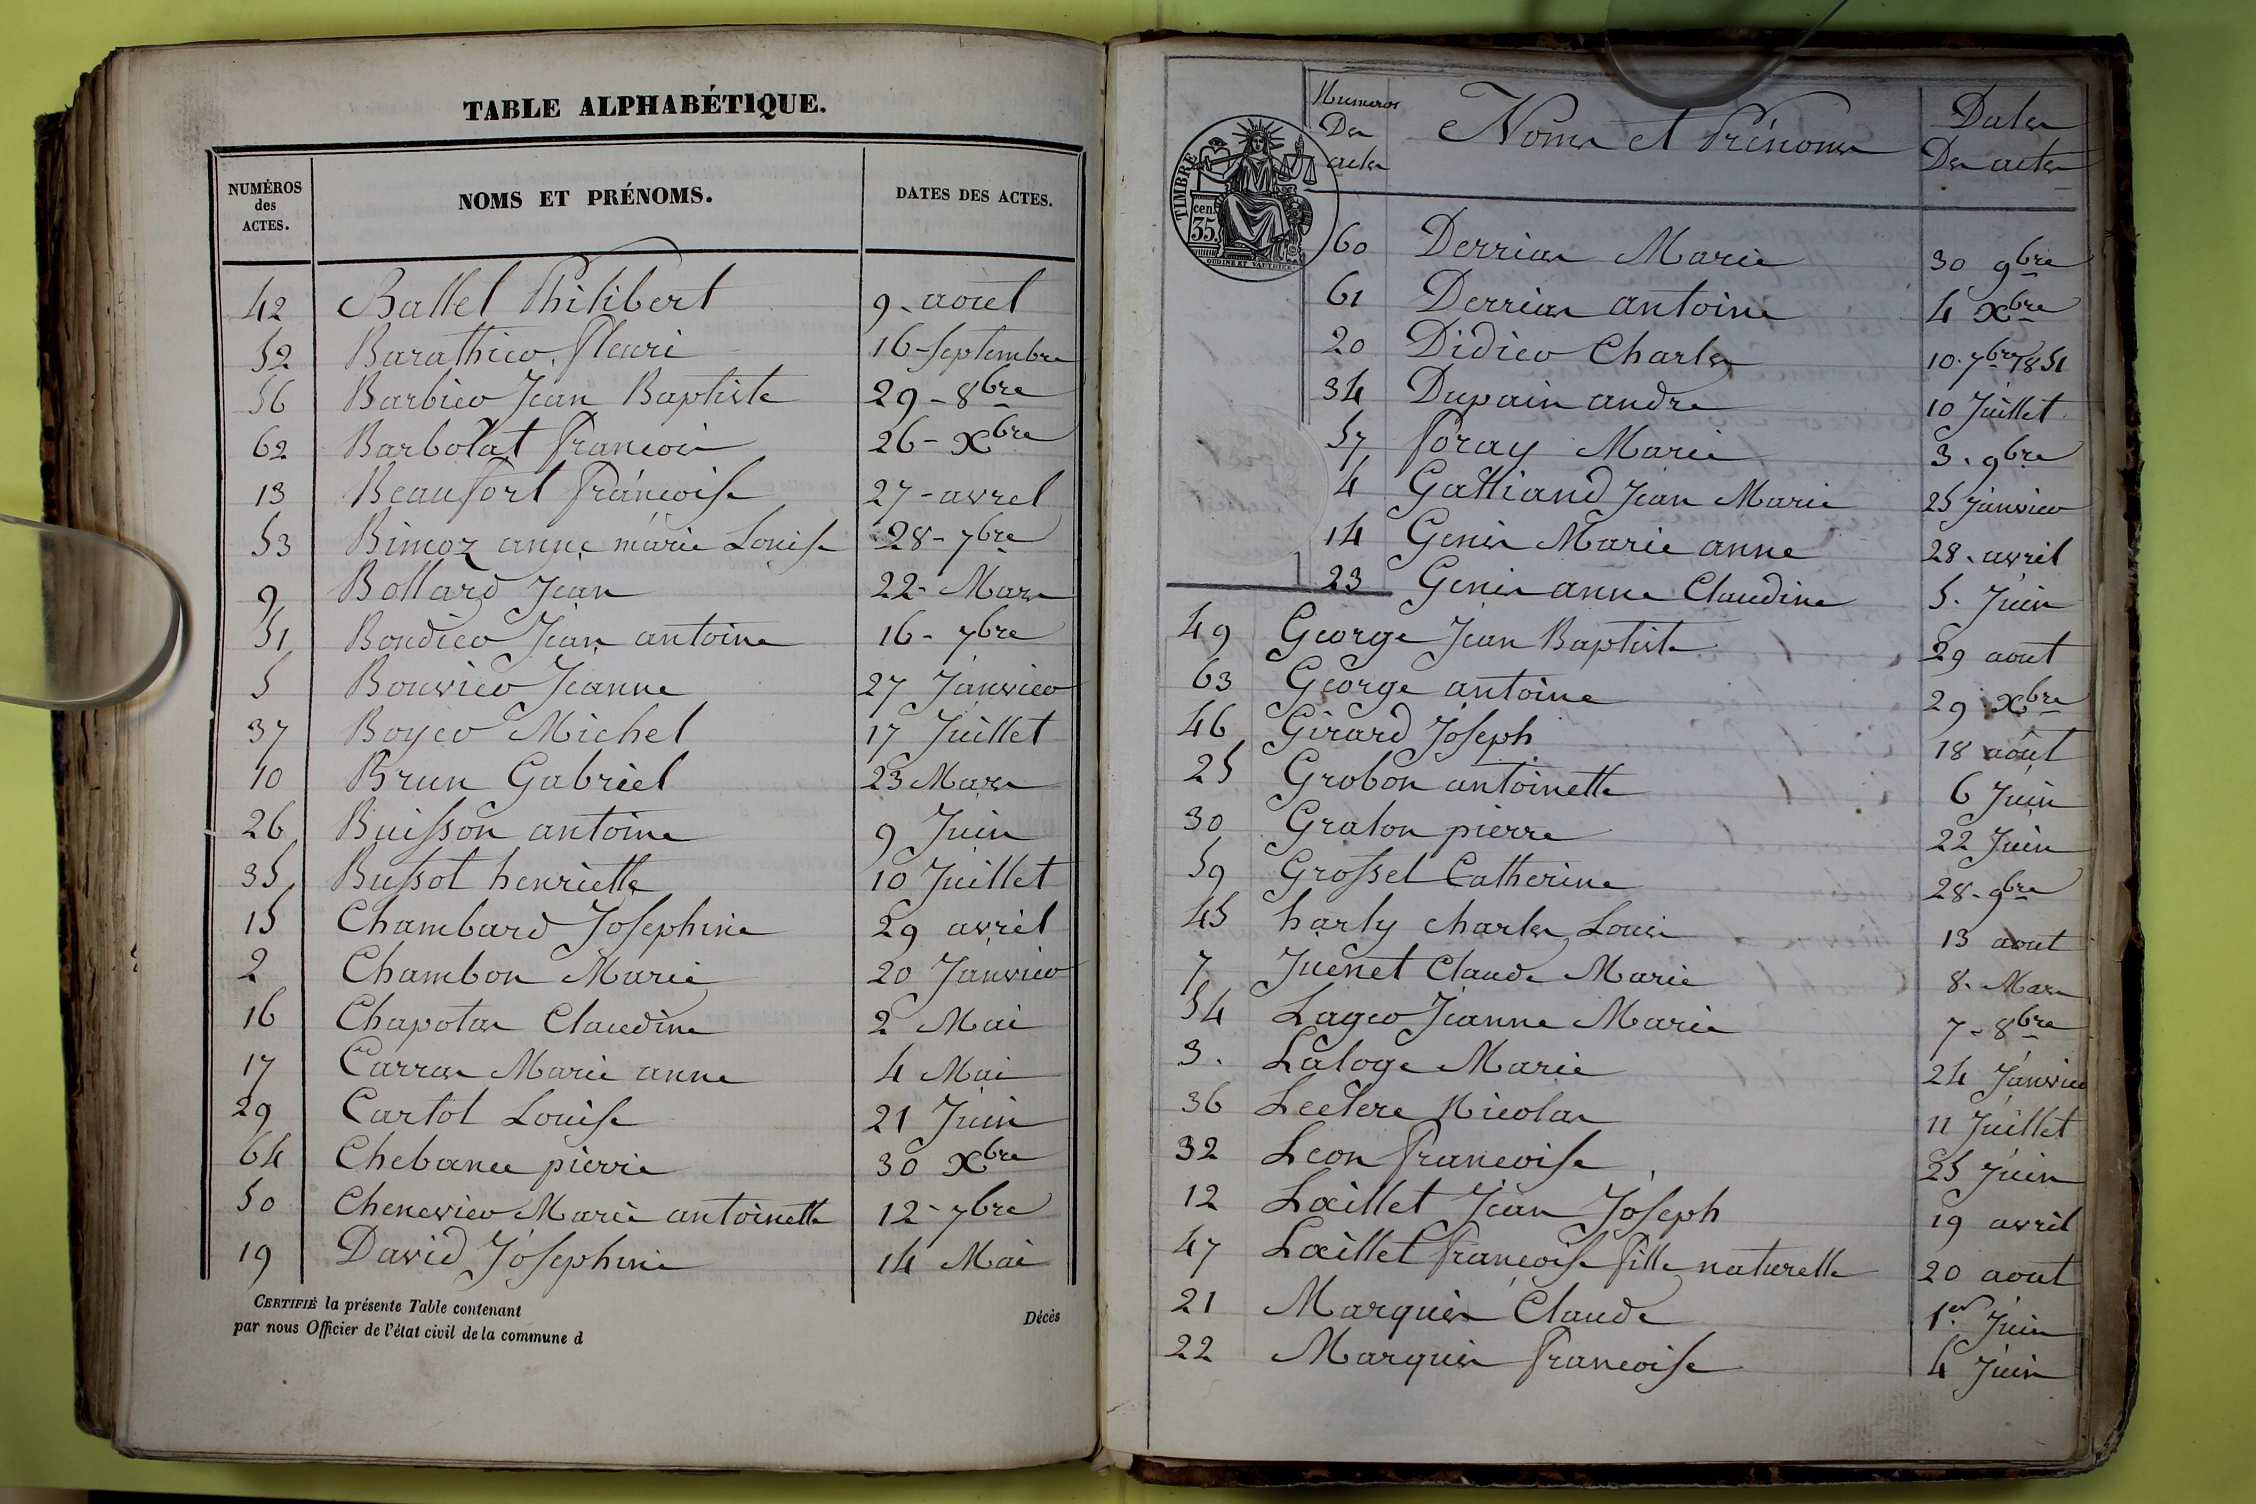 TABLE ALPHABÉTIQUE.
NUMÉROS des ACTES. NOMS ET PRÉNOMS. DATES DES ACTES.
42 Ballet Philibert 9 - aout
52 Barathier fleuri 16 - septembre
56 Barbier Jean Baptiste 29 - 8bre
62 Barbolat francois 26 - Xbre
13 Beaufort francoise 27 - avrel
53 Bimoz anne marie Louise 28 - 7bre
9 Bollard Jean 22 - Mars
51 Boudier Jean antoine 16 - 7bre
5 Bouvier Jeanne 27 Janvier
37 Boyer Michel 17 Juillet
10 Brun Gabriel 23 Mars
26 Buisson antoine 9 Juin
35 Bussot henriette 10 Juillet
15 Chambard Josephine 29 avril
2 Chambon Marie 20 Janvier
16 Chapotas Claudine 2 Mai
17 Carras Marie anne 4 Mai
29 Cartot Louise 21 Juin
64 Chebance pierre 30 Xbre
50 Chenevier Marie antoinette 12 - 7bre
19 David Josephine 14 Mai
CERTIFIÉ la présente Table contenant Décès
par nous Officier de l'état civil de la commune d
Numeros Des actes Noms et Prénoms Dates Des actes
TIMBRE
35 cen.
OUDINÉ ET VAUTHIER
60 Derrias Marie 30 9bre
61 Derrias antoine 4 Xbre
20 Didier Charles 10. 7bre 1851
34 Dupain andre 10 Juillet
57 foray Marie 3. 9bre
4 Galliand Jean Marie 25 Janvier
14 Genis Marie anne 28. avril
23 Genis anne Claudine 5. Juin
49 George Jean Baptiste 29 aout
63 George antoine 29 Xbre
46 Girard Joseph 18 août
25 Grobon antoinette 6 Juin
30 Graton pierre 22 Juin
59 Grosset Catherine 28 - 9bre
45 harly charles Louis 13 aout
7 Juenet Claude Marie 8. Mars
54 Lager Jeanne Marie 7 - 8bre
3. Laloge Marie 24 Janvier
36 Leclere Nicolas 11 Juillet
32 Leon francoise 25 Juin
12 Lœillet Jean Joseph 19 avril
47 Lœillet françoise fille naturelle 20 aout
21 Marquis Claude 1er Juin
22 Marquis francoise 4 Juin